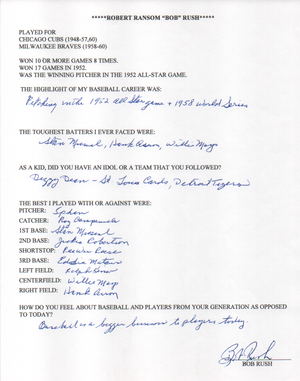 *****ROBERT RANSOM "BOB" RUSH*****
PLAYED FOR
CHICAGO CUBS (1948-57,60)
MILWAUKEE BRAVES (1958-60)
WON 10 OR MORE GAMES 8 TIMES.
WON 17 GAMES IN 1952.
WAS THE WINNING PITCHER IN THE 1952 ALL-STAR GAME.
THE HIGHLIGHT OF MY BASEBALL CAREER WAS:
Pitching in the 1952 all Star game + 1958 World Series
THE TOUGHEST BATTERS I EVER FACED WERE:
Stan Musial, Hank Aaron, Willie Mays
AS A KID, DID YOU HAVE AN IDOL OR A TEAM THAT YOU FOLLOWED?
Dizzy Dean - St. Louis Cards, Detroit Tigers
THE BEST I PLAYED WITH OR AGAINST WERE:
PITCHER: Spahn
CATCHER: Roy Campanella
1ST BASE: Stan Musial
2ND BASE: Jackie Robertson
SHORTSTOP: Peewee Reese
3RD BASE: Eddie Mathews
LEFT FIELD: Ralph Kiner
CENTERFIELD: Willie Mays
RIGHT FIELD: Hank Aaron
HOW DO YOU FEEL ABOUT BASEBALL AND PLAYERS FROM YOUR GENERATION AS OPPOSED
TO TODAY?
Baseball is a bigger business to players today.
Bob Rush
BOB RUSH